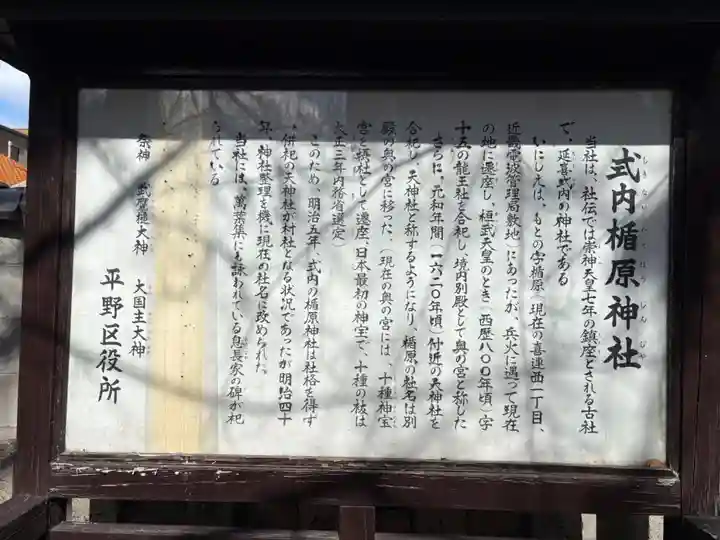 式内楯原神社
しきないたてはらじんじゃ
当社は、社伝では崇神天皇七年の鎮座とされる古社
で、延喜式内の神社である
いにしえは、もとの字楯原(現在の喜連西一丁目、
近畿電波管理局敷地)にあったが、兵火に遇って現在
の地に遷座し、桓武天皇のとき(西歴八〇〇年頃)字
十五の龍王社を合祀し境内別殿として奥の宮と称した
さらに、元和年間(一六二〇年頃)付近の天神社を
合祀し、天神社と称するようになり、楯原の社名は別
殿の奥の宮に移った。(現在の奥の宮には、十種神宝
宮を摂社として遷座、日本最初の神宝で、十種の祓は
大正三年内務省選定)
このため、明治五年、式内の楯原神社は社格を得ず
、併祀の天神社が村社となる状況であったが明治四十
年、神社整理を機に現在の社名に改められた
当社には、萬葉集にも詠われている息長家の碑が祀
られている
祭神 武甕槌大神 大国主大神
平野区役所